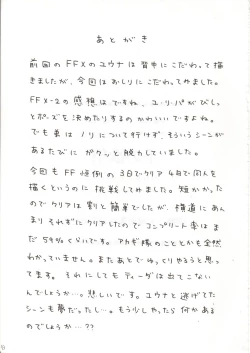 あとがき
前回のFFXのユウナは背中にこだわって描
きましたが、今回はおしりにこだわってみました。
FFX-2の感想はですね、ユ・リ・パがびしっ
とポーズを決めたりするのがかわいいですよね。
でも弟はノリについて行けず、そういうシーンが
あるたびにガクッと脱力していました。
今回もFF恒例の3日でクリア4日で同人を
描くというのに挑戦してみました。短かった
のでクリアは割と簡単でしたが、横道にあん
まりそれずにクリアしたのでコンプリート率はま
だ59%くらいです。アカギ隊のこととかも全然
わかっていません。またあとでゆっくりやろうと思っ
てます。それにしてもティーダは出てこない
んでしょうか…。悲しいです。ユウナと逃げてた
シーンも夢だったし…。もう少しやったら何かある
のでしょうか…??